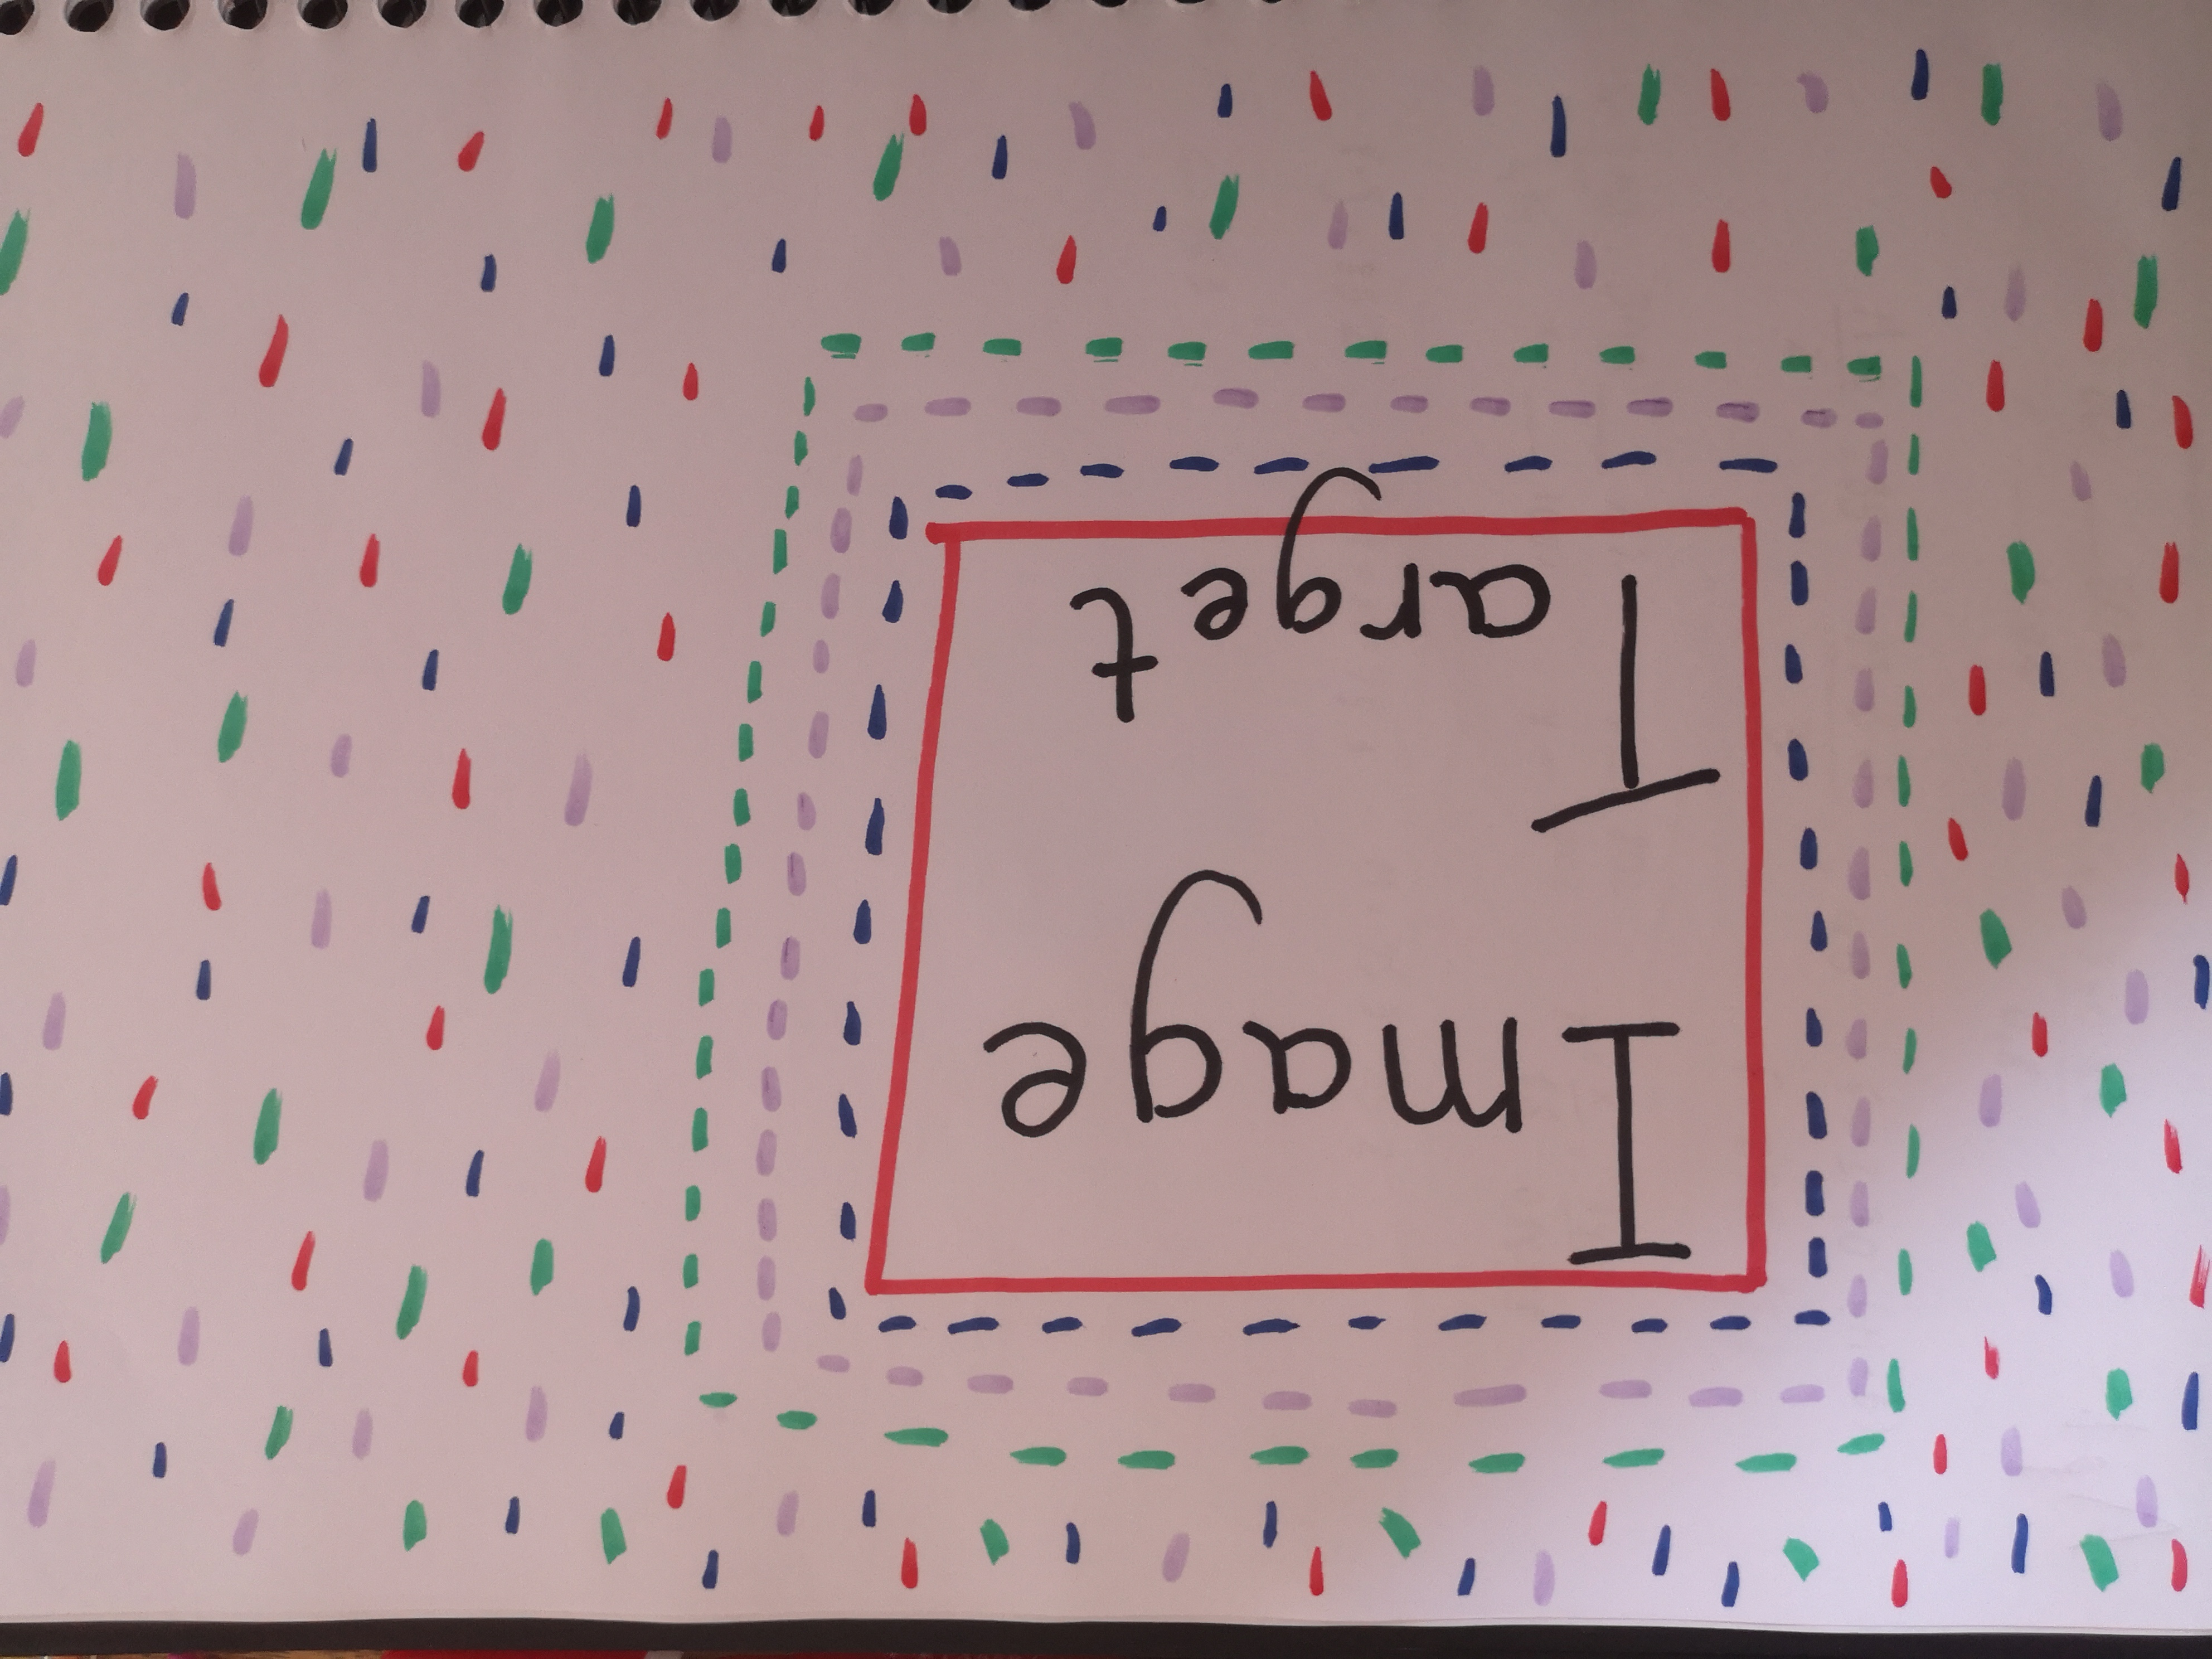 Image
Target